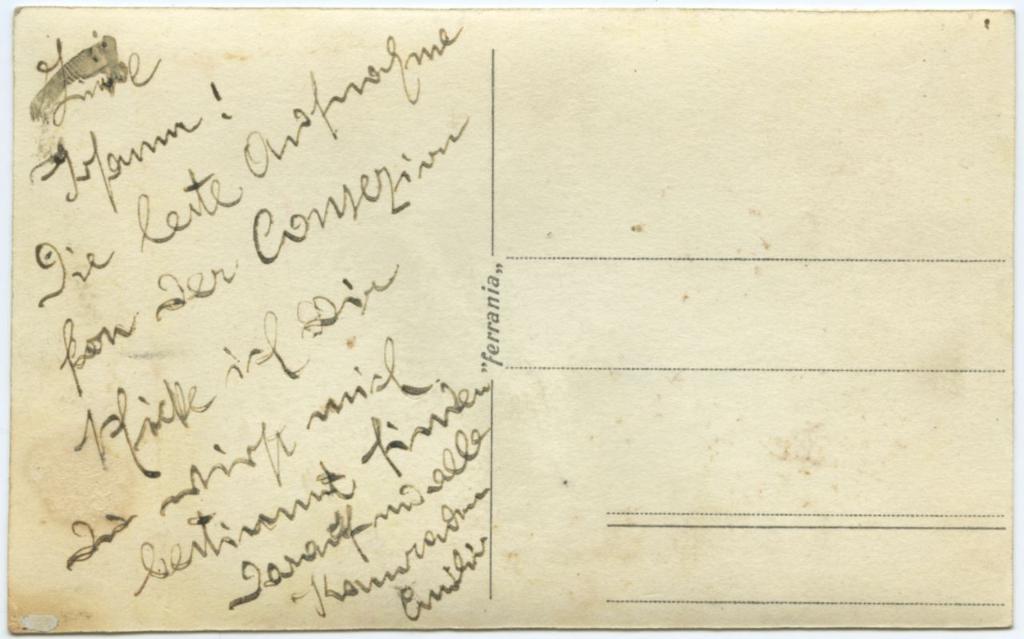 Die beste Aufnahme
fon der Conzezion
schicke ich Dir
Du wirst mich
bestimmt finden
darauf und alle
Kameraden
Emilio
"ferrania"